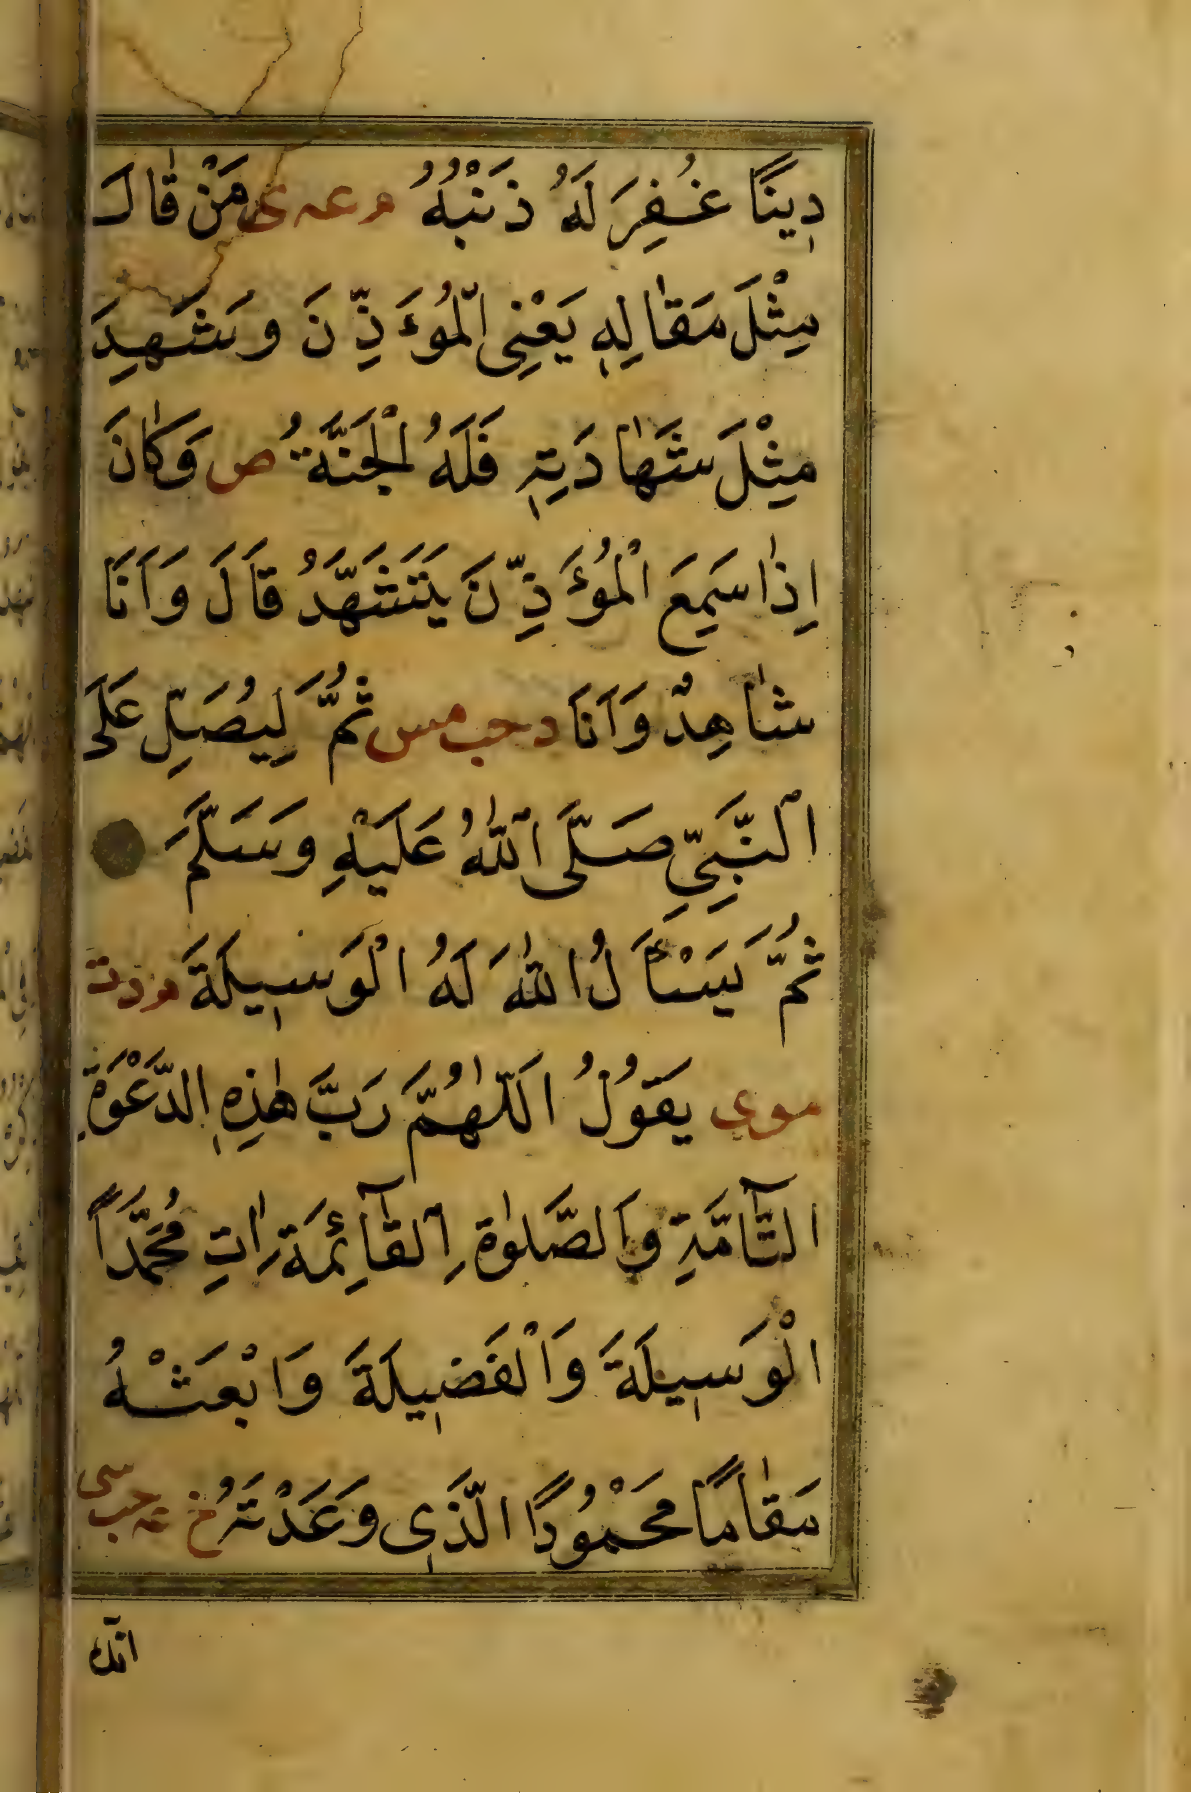 دِينًا غُفِرَ لَهُ ذَنْبُهُ م عه ى مَنْ قَالَ
مِثْلَ مَقَالِهِ يَعْنِى الْمُؤَذِّنَ وَشَهِدَ
مِثْلَ شَهَادَتِهِ فَلَهُ الْجَنَّةُ ص وَكَانَ
اِذَا سَمِعَ الْمُؤَذِّنَ يَتَشَهَّدُ قَالَ وَاَنَا
شَاهِدٌ وَاَنَا د حب مس ثُمَّ لِيُصَلِّ عَلَى
النَّبِيِّ صَلَّى اللّٰهُ عَلَيْهِ وَسَلَّمَ
ثُمَّ يَسْاَلُ اللّٰهَ لَهُ الْوَسِيلَةَ م د ت
مو ى يَقُولُ اَللّٰهُمَّ رَبَّ هٰذِهِ الدَّعْوَةِ
التَّآمَّةِ وَالصَّلٰوةِ الْقَآئِمَةِ اٰتِ مُحَمَّدًا
الْوَسِيلَةَ وَالْفَضِيلَةَ وَابْعَثْهُ
مَقَامًا مَحْمُودًا الَّذِى وَعَدْتَهُ خ عه حب سى
انك